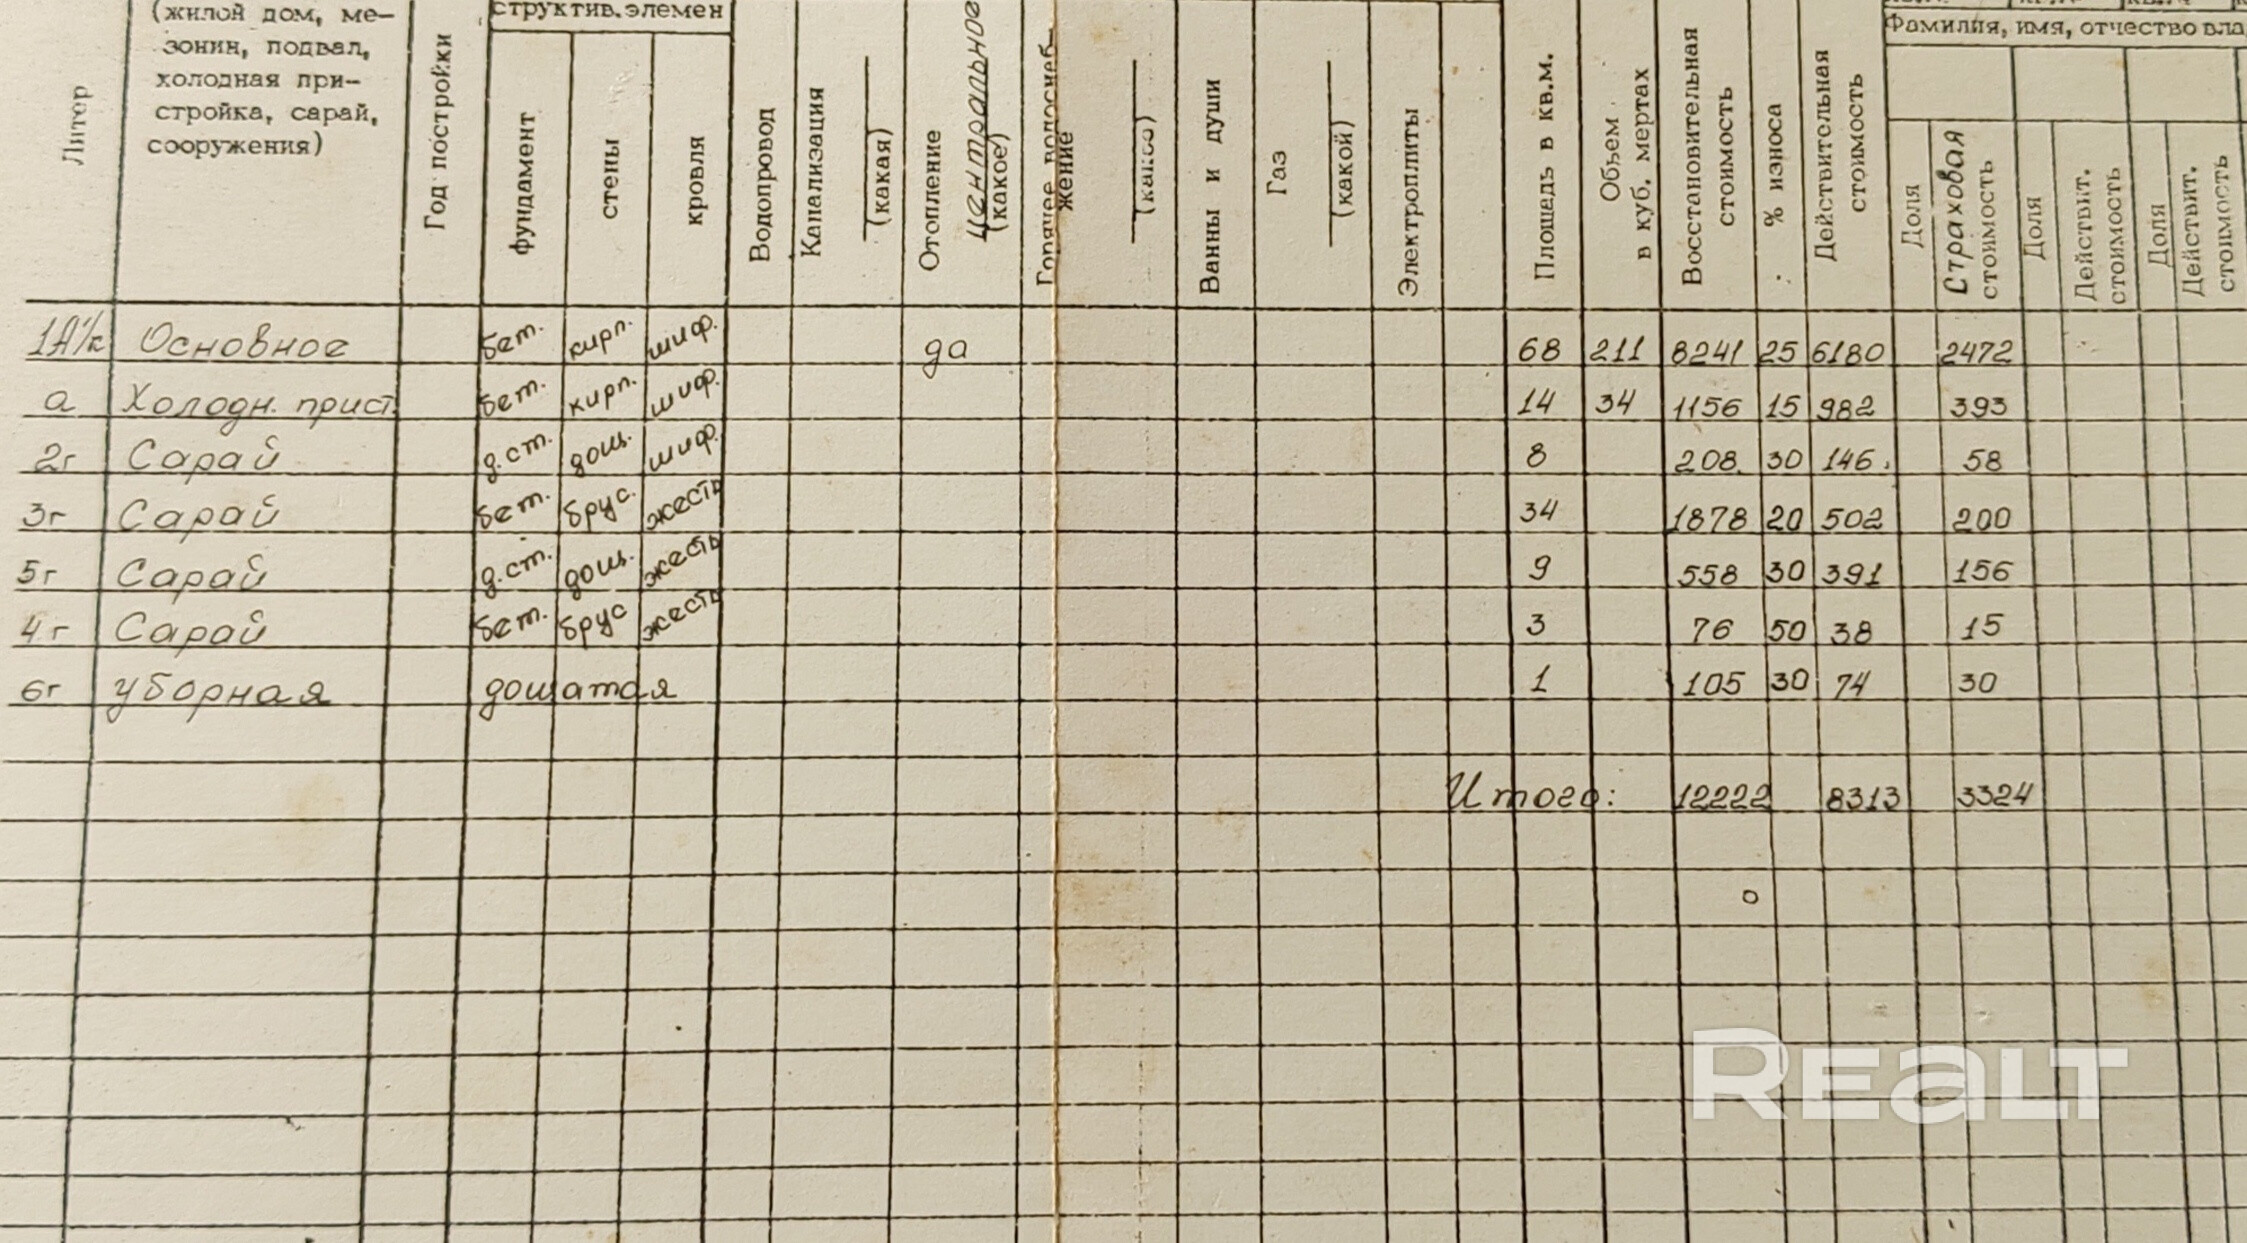 (жилой дом, ме-
зонин, подвал,
холодная при-
стройка, сарай,
сооружения)
структив. элемен
Литер
Год постройки
фундамент
стены
кровля
Водопровод
Канализация
(какая)
Отопление
центральное
(какое)
Горячее водоснеб-
жение
(какое)
Ванны и души
Газ
(какой)
Электроплиты
Площедь в кв.м.
Обьем
в куб. мертах
Восстановительная
стоимость
% износа
Действительная
стоимость
Фамилия, имя, отчество вла
Доля
Страховая
стоимость
Доля
Действит.
стоимость
Доля
Действит.
стоимость
1А1/к Основное бет. кирп. шиф. да 68 211 8241 25 6180 2472
а Холодн. прист. бет. кирп. шиф. 14 34 1156 15 982 393
2г Сарай д.ст. дощ. шиф. 8 208. 30 146. 58
3г Сарай бет. брус. жесть 34 1878 20 502 200
5г Сарай д.ст. дощ. жесть 9 558 30 391 156
4г Сарай бет. брус жесть 3 76 50 38 15
6г уборная дощатая 1 105 30 74 30
Итого: 12222 8313 3324
REALT